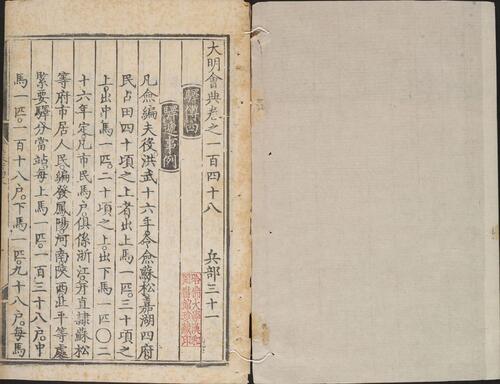 大明會典卷之一百四十八　兵部三十一
哈佛大學漢和
圖書館珍藏印
驛傳四
驛遞事例
凡僉編夫役洪武十六年令僉蘇松嘉湖四府
民占田四十頃之上者出上馬一匹三十頃之
上出中馬一匹二十頃之上出下馬一匹○二
十六年定凡市民馬户俱係浙江并直隸蘇松
等府市居人民編發鳳陽河南陝西北平等處
緊要驛分當站每上馬一匹一百三十八户中
馬一匹一百一十八户下馬一匹九十八户每馬